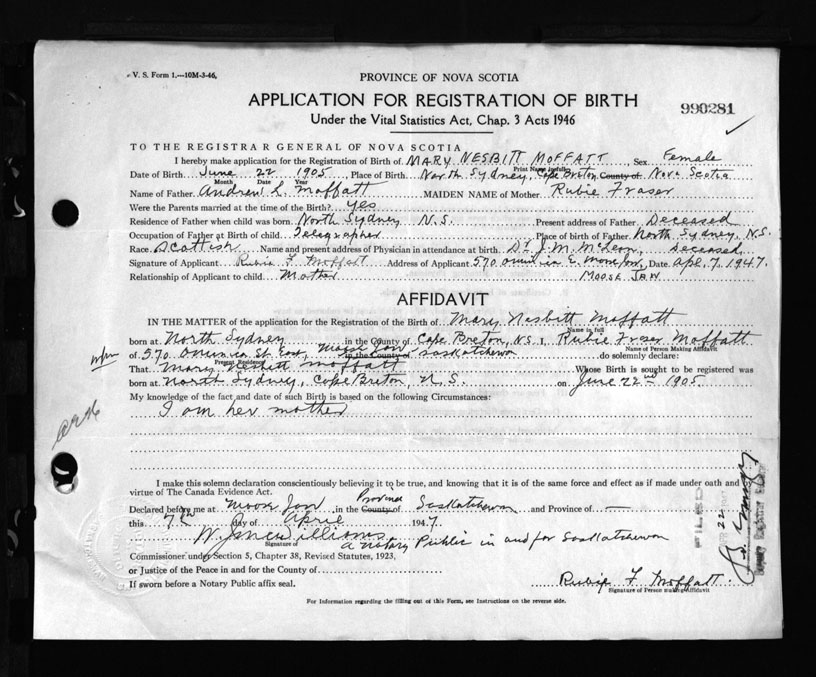 V. S. Form 1.—10M-3-46.
PROVINCE OF NOVA SCOTIA
APPLICATION FOR REGISTRATION OF BIRTH
990281
Under the Vital Statistics Act, Chap. 3 Acts 1946
TO THE REGISTRAR GENERAL OF NOVA SCOTIA
I hereby make application for the Registration of Birth of MARY NESBITT MOFFATT, Sex Female
Date of Birth June 22 1905, Place of Birth North Sydney, Cape Breton County of Nova Scotia
Month Date Year
Name of Father Andrew L. Moffatt MAIDEN NAME of Mother Rubie Fraser
Were the Parents married at the time of the Birth? yes
Residence of Father when child was born North Sydney N.S. Present address of Father Deceased
Occupation of Father at Birth of child Telegrapher Place of birth of Father North Sydney, N.S.
Race Scottish Name and present address of Physician in attendance at birth Dr. J. M. McLeon, deceased
Signature of Applicant Rubie F Moffatt Address of Applicant 570 E. Moose Jaw, Date Apl. 7, 1947.
Relationship of Applicant to child Mother MOOSE JAW
AFFIDAVIT
IN THE MATTER of the application for the Registration of Birth of Mary Nesbitt Moffatt
Name in full
born at North Sydney in the County of Cape Breton, N.S. I, Rubie Fraser Moffatt
Name of Person Making Affidavit
of 570 St East, Moose Jaw in the County of Saskatchewan do solemnly declare:
Present Residence
That Mary Nesbitt Moffatt Whose Birth is sought to be registered was
born at North Sydney, Cape Breton, N.S. on June 22nd 1905
My knowledge of the fact and date of such Birth is based on the following Circumstances:
I am her mother
I make this solemn declaration conscientiously believing it to be true, and knowing that it is of the same force and effect as if made under oath and
virtue of The Canada Evidence Act.
Declared before me at Moose Jaw, in the Province County of Saskatchewan and Province of —
this 7th day of April 1947.
Signature of
a notary Public in and for Saskatchewan
Commissioner under Section 5, Chapter 38, Revised Statutes, 1923,
or Justice of the Peace in and for the County of
If sworn before a Notary Public affix seal.
Rubie F Moffatt
Signature of Person making Affidavit
For Information regarding the filling out of this Form, see Instructions on the reverse side.
FILED
APR 22